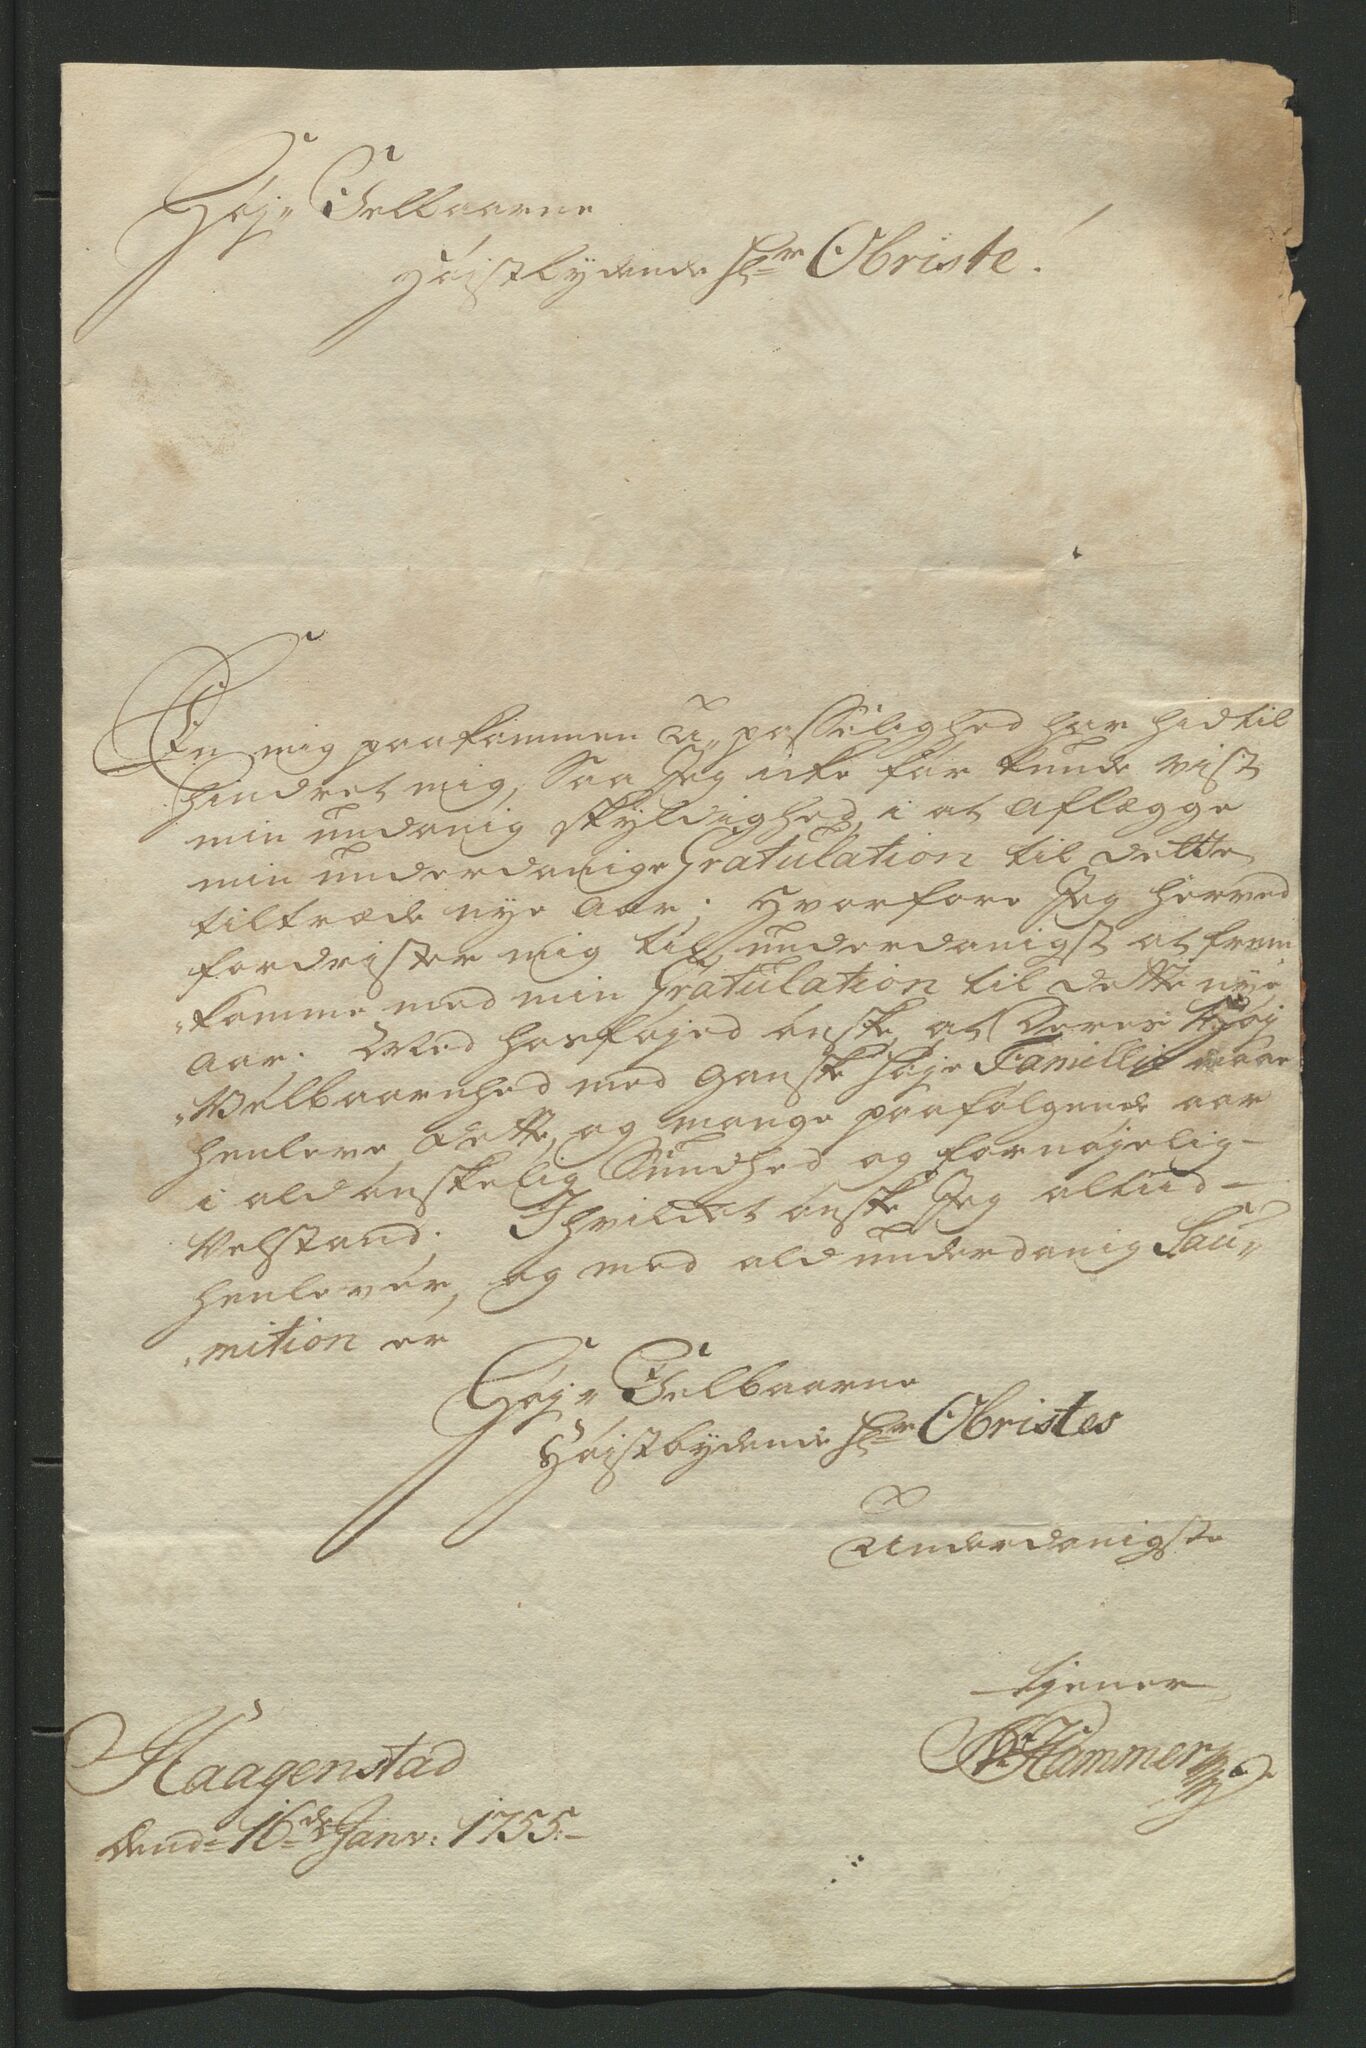 Høj„ Velbaarne
Højstbydende Hr Obriste!
En mig paakommen U„passelighed har hidtil
hindret mig, Saa Jeg icke før kunde vist
min undanig skyldighed, i at aflægge
min underdanige Gratulation til dette
tiltræde nye Aar; Hvorfore Jeg herved
fordrister mig til, underdanigst at frem
„komme med min Gratulation til dette nye
Aar. Med hosføjed ønske, at Deres Høj
„Velbaarnhed med ganske høje Famillie maae
henleve dette, og mange paafølgende aar
i ald ønskelig Sundhed og fornøjelig
Velstand. I hvilcket ønske Jeg altiid
henlever, og med ald underdanig Sou„
„mition er
Høj„ Velbaarne
Højstbydende Hr Obristes
Underdanigste
tjener
Hammer
Haagenstad
dend 16de Janv: 1755